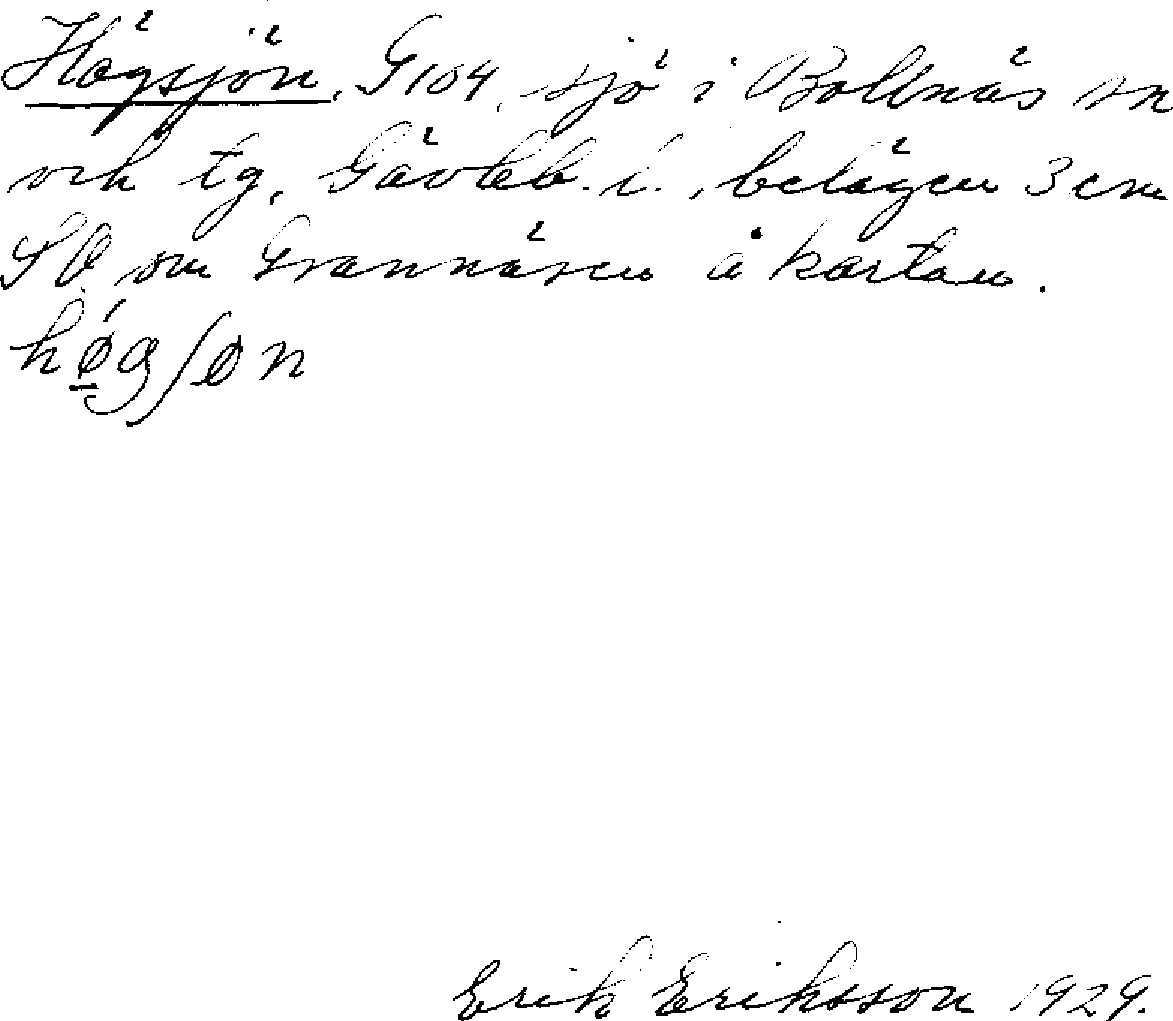 Högsjön, G104, sjö i Bollnäs sn
och tg, Gävleb. l., belägen 3 cm
SO om Grannäsen å kartan.
hǿ̱gʃøn
Erik Eriksson 1929.